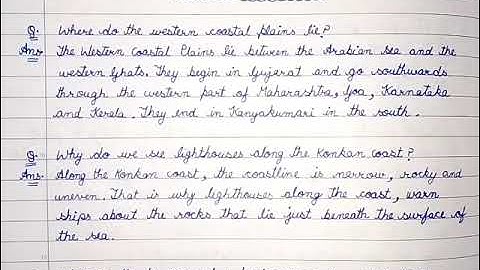 Q. Where do the western coastal plains lie?
Ans. The Western Coastal Plains lie between the Arabian sea and the
western Ghats. They begin in Gujerat and go southwards
through the western part of Maharashtra, Goa, Karnataka
and Kerela. They end in Kanyakumari in the south.
Q. Why do we see lighthouses along the Konkan Coast?
Ans. Along the Konkan coast, the coastline is narrow, rocky and
uneven. That is why lighthouses along the coast, warn
ships about the rocks that lie just beneath the surface of
the sea.